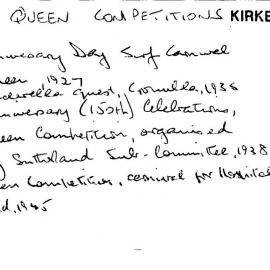 QUEEN COMPETITIONS KIRKE
nniversary Day Surf Carnival
ueen, 1927
nderella Quest, Cronulla, 1936
nniversary (150th) Celebrations,
een Competition, organised
Sutherland Sub-Committee, 1938
een Competition, carnival for Hospital
d, 1945